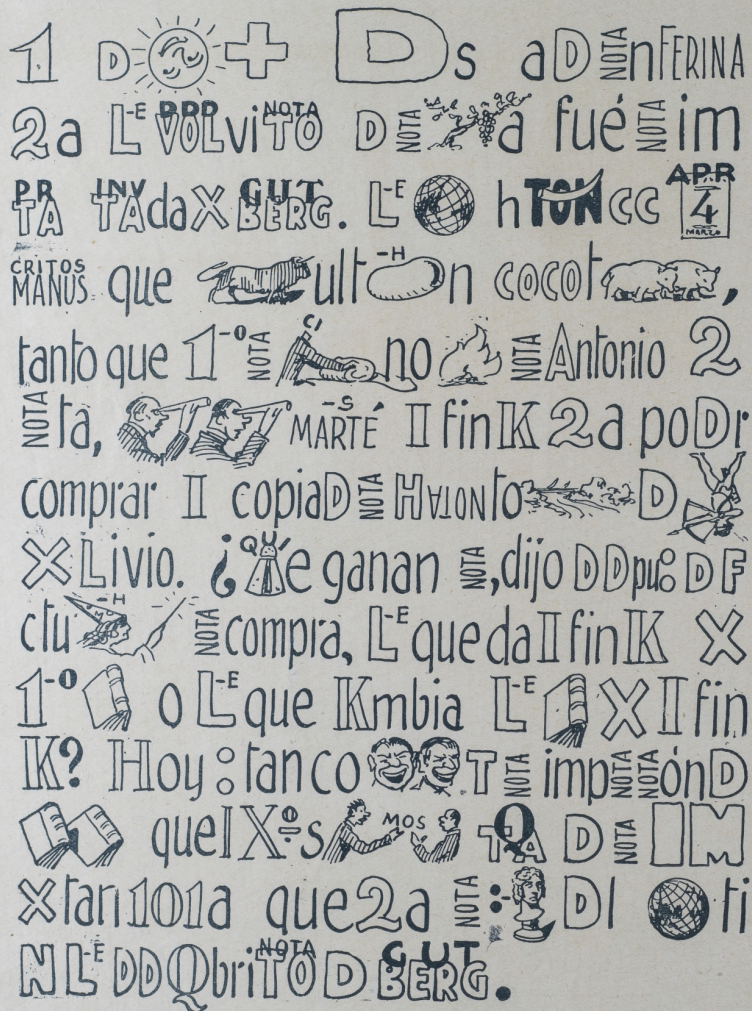 1 D + Ds aD NOTA nFERINA
2a L-E PPP VOLvi NOTA TO D NOTA a fué NOTA im
PR TA INV TAda X GUT BERG. L-E hTON CC APR 4 MARZO
CRITOS MANUS que ult -H n cocot ,
tanto que 1-O NOTA CI no NOTA Antonio 2
NOTA ta, -S MARTÉ II fin K 2a poDr
comprar II copiaD NOTA H NOTA to D
X Livio. ¿ QU e ganan NOTA, dijo DDpu: D F
ctu -H NOTA compra, L-E queda II fin K X
1-O o L-E que Kmbia L-E X II fin
K? Hoy : tan co T NOTA imp NOTA NOTA ónD
que I X O s MOS Q TA D NOTA IM
x tan 101a que 2a NOTA : DI ti
N L-E DDQbri NOTA TO D GUT BERG.